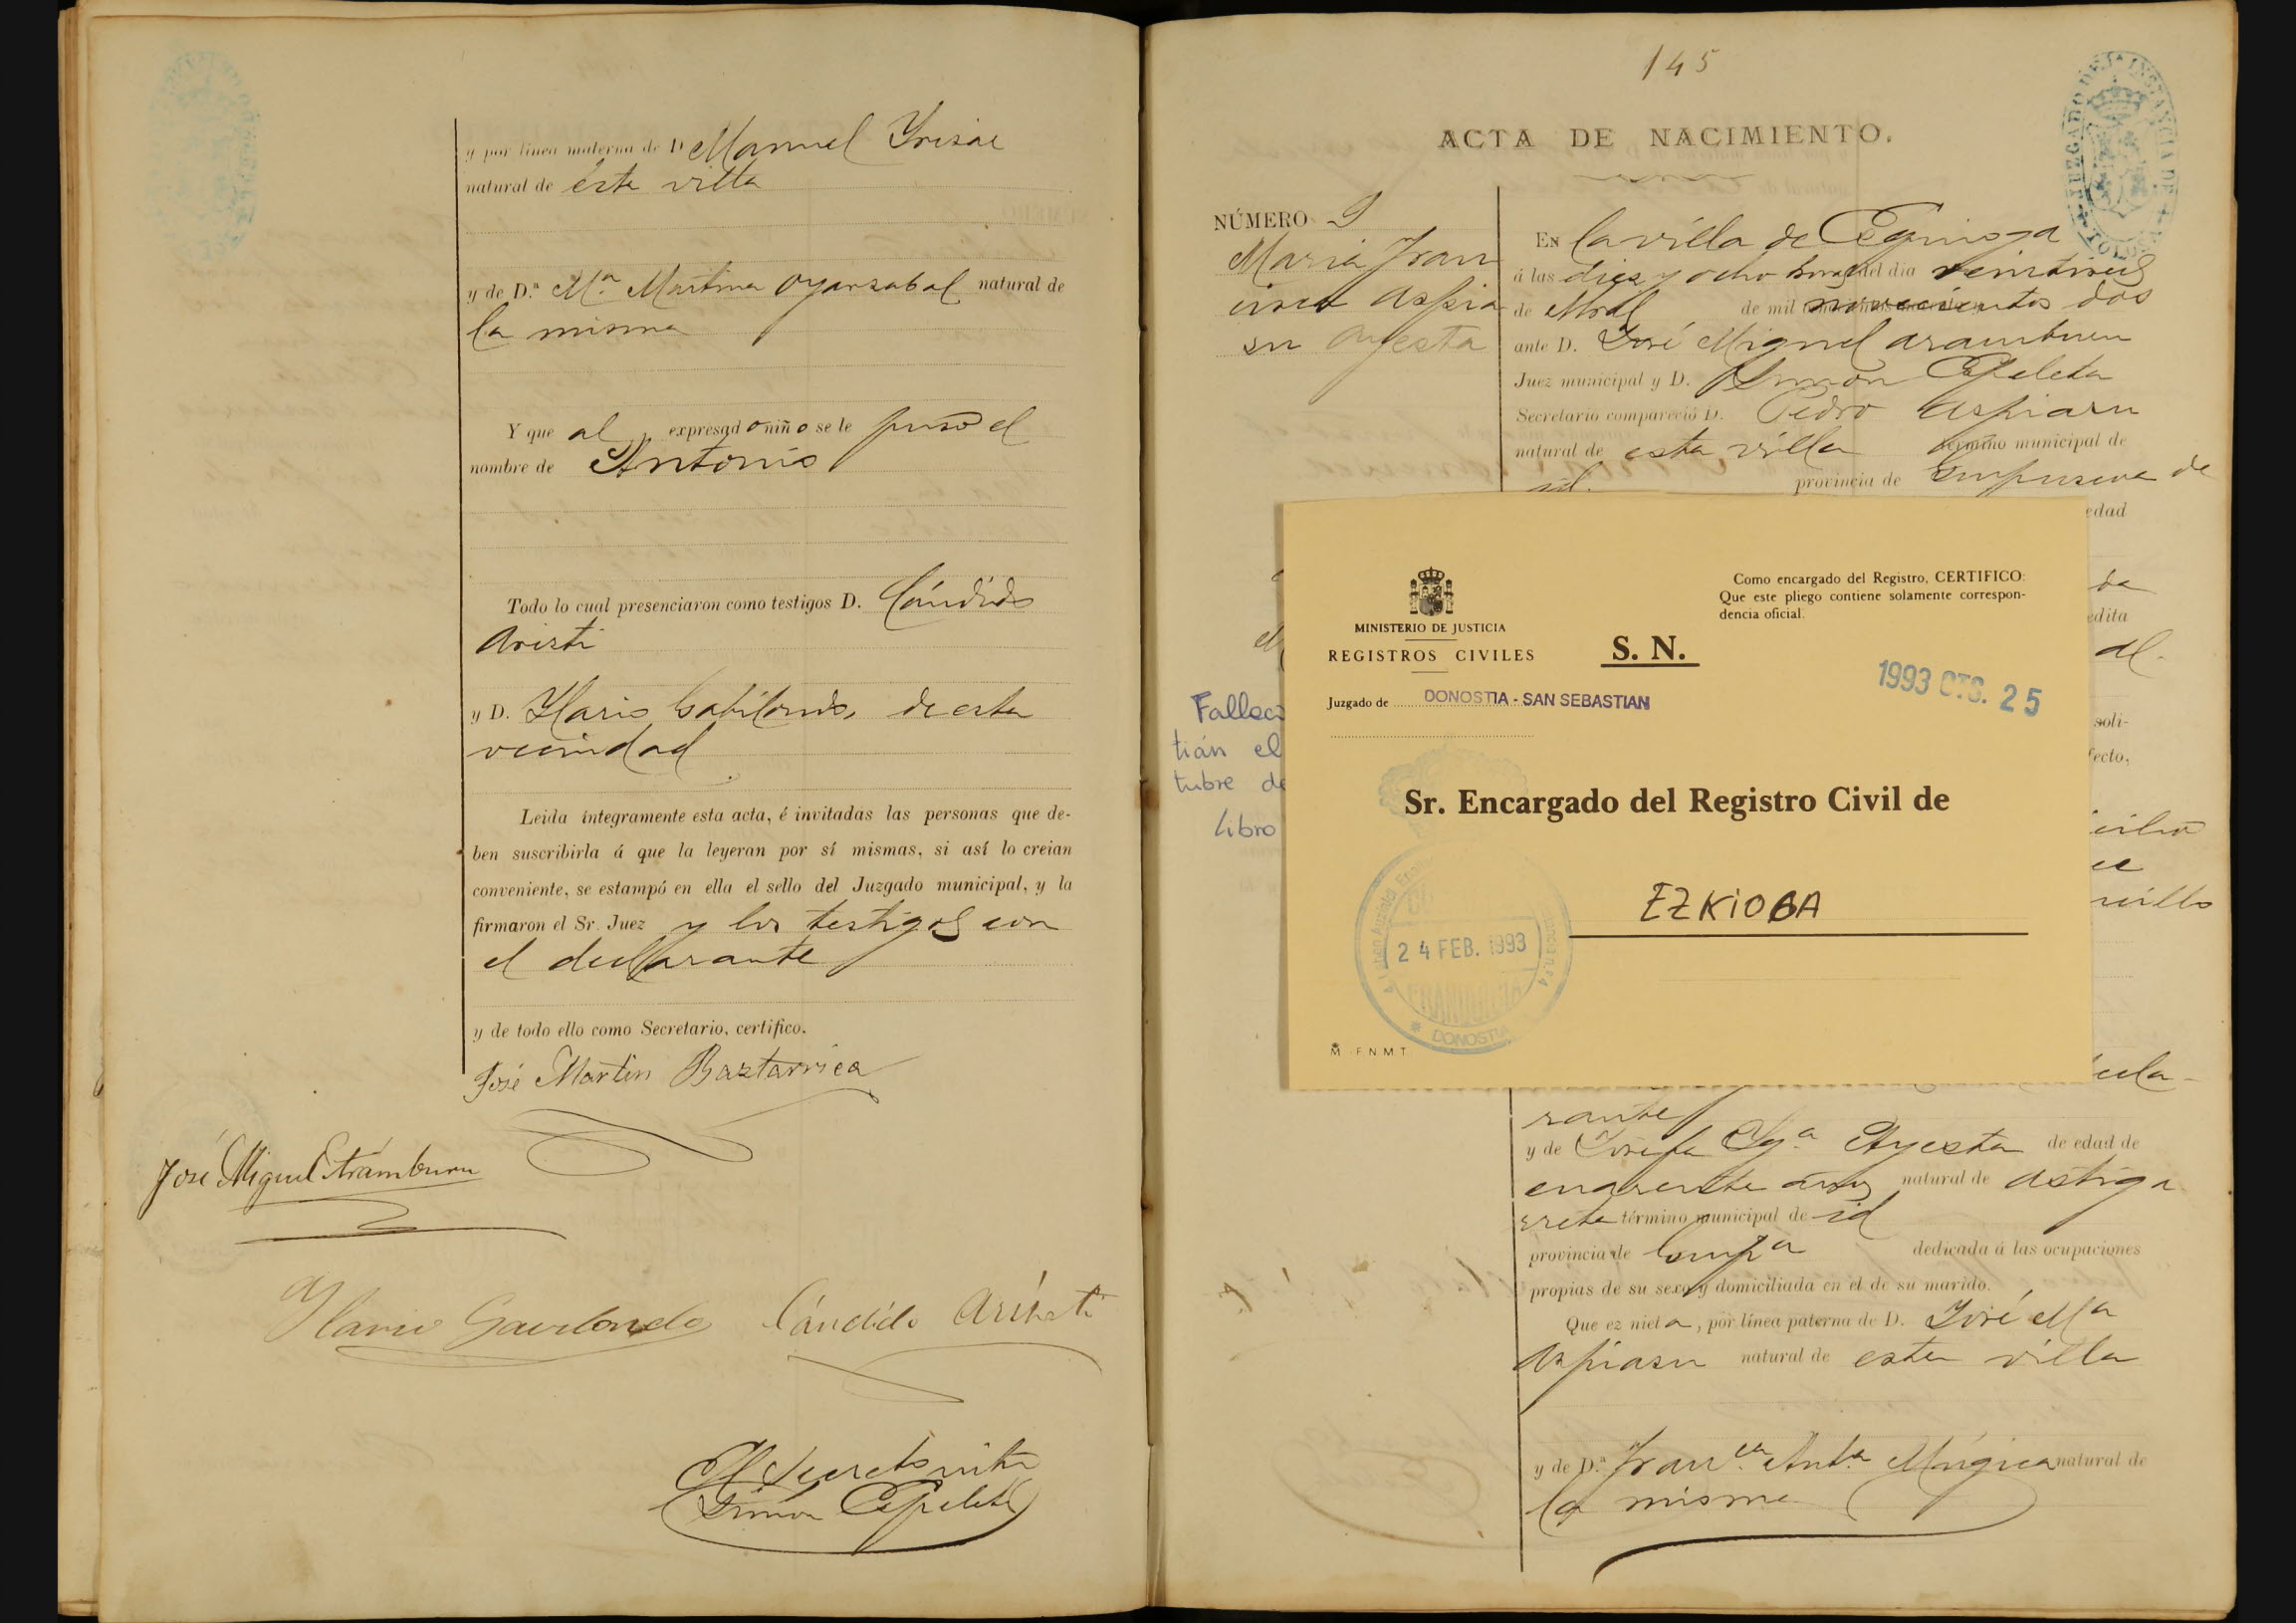 y por linea materna de D. Manuel Yrizar
natural de esta villa
y de D.ª M.ª Martina Oyarzabal natural de
la misma
Y que al expresado niño se le puso el
nombre de Antonio
Todo lo cual presenciaron como testigos D. Cándido
Aristi
y D. Ylario Gabilondo, de esta
vecindad
Leida íntegramente esta acta, é invitadas las personas que de-
ben suscribirla á que la leyeran por sí mismas, si así lo creian
conveniente, se estampó en ella el sello del Juzgado municipal, y la
firmaron el Sr. Juez y los testigos con
el declarante
y de todo ello como Secretario, certifico.
José Martin Baztarrica
José Miguel Aramburu
Ylario Gavilondo Cándido Aristi
El Secretario
Simon Espeleta
145
ACTA DE NACIMIENTO.
JUZGADO DE 1ª INSTANCIA DE TOLOSA
NÚMERO 9
Maria Fran
cisca Aspia
su Ayesta
EN la villa de Ezquioga
á las diez y ocho horas del dia
de Abril de mil novecientos dos
ante D. José Miguel Aramburu
Juez municipal y D. Simon Espeleta
Secretario compareció D. Pedro Aspiasu
natural de esta villa término municipal de
id. provincia de Guipuzcoa de
edad
edita
al.
soli-
fecto,
Fallec
tián el
tubre de
libro
MINISTERIO DE JUSTICIA
REGISTROS CIVILES
S. N.
Como encargado del Registro, CERTIFICO:
Que este pliego contiene solamente correspon-
dencia oficial.
Juzgado de DONOSTIA - SAN SEBASTIAN
1993 OTS. 25
Sr. Encargado del Registro Civil de
EZKIOGA
24 FEB. 1993
FRANQUICIA
DONOSTIA
F.N.M.T.
cla-
rante
y de Josefa Ig.ª Ayesta de edad de
cuarenta años natural de Astiga
rreta término municipal de id
provincia de Guip.ª dedicada á las ocupaciones
propias de su sexo y domiciliada en el de su marido.
Que es nieta, por línea paterna de D. José M.ª
Aspiasu natural de esta villa
y de D.ª Fran.ca Ant.ª Múgica natural de
la misma